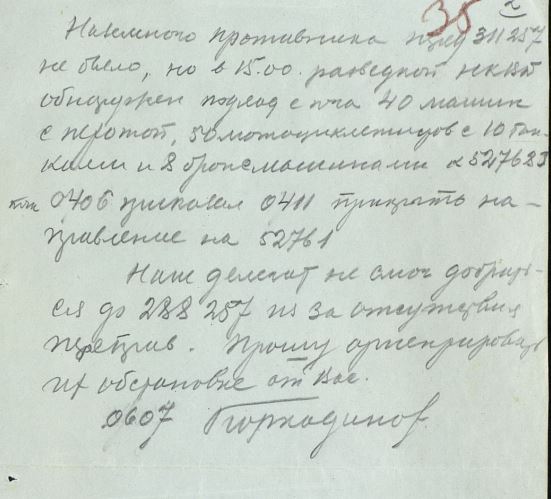 35 2
Наземного противника перед 311 257
не было, но в 15.00. разведкой
обнаружен подход с юга 40 машин
с пехотой, 50 мотоциклистов с 10 тан-
ками и 8 бронемашинами к 527623
0406 приказал 0411 прикрыть на-
правление на 52761
Наш делегат не смог добрать-
ся до 288 257 из за отсутствия
переправ. Прошу ориентировать
их обстановке от Вас.
0607